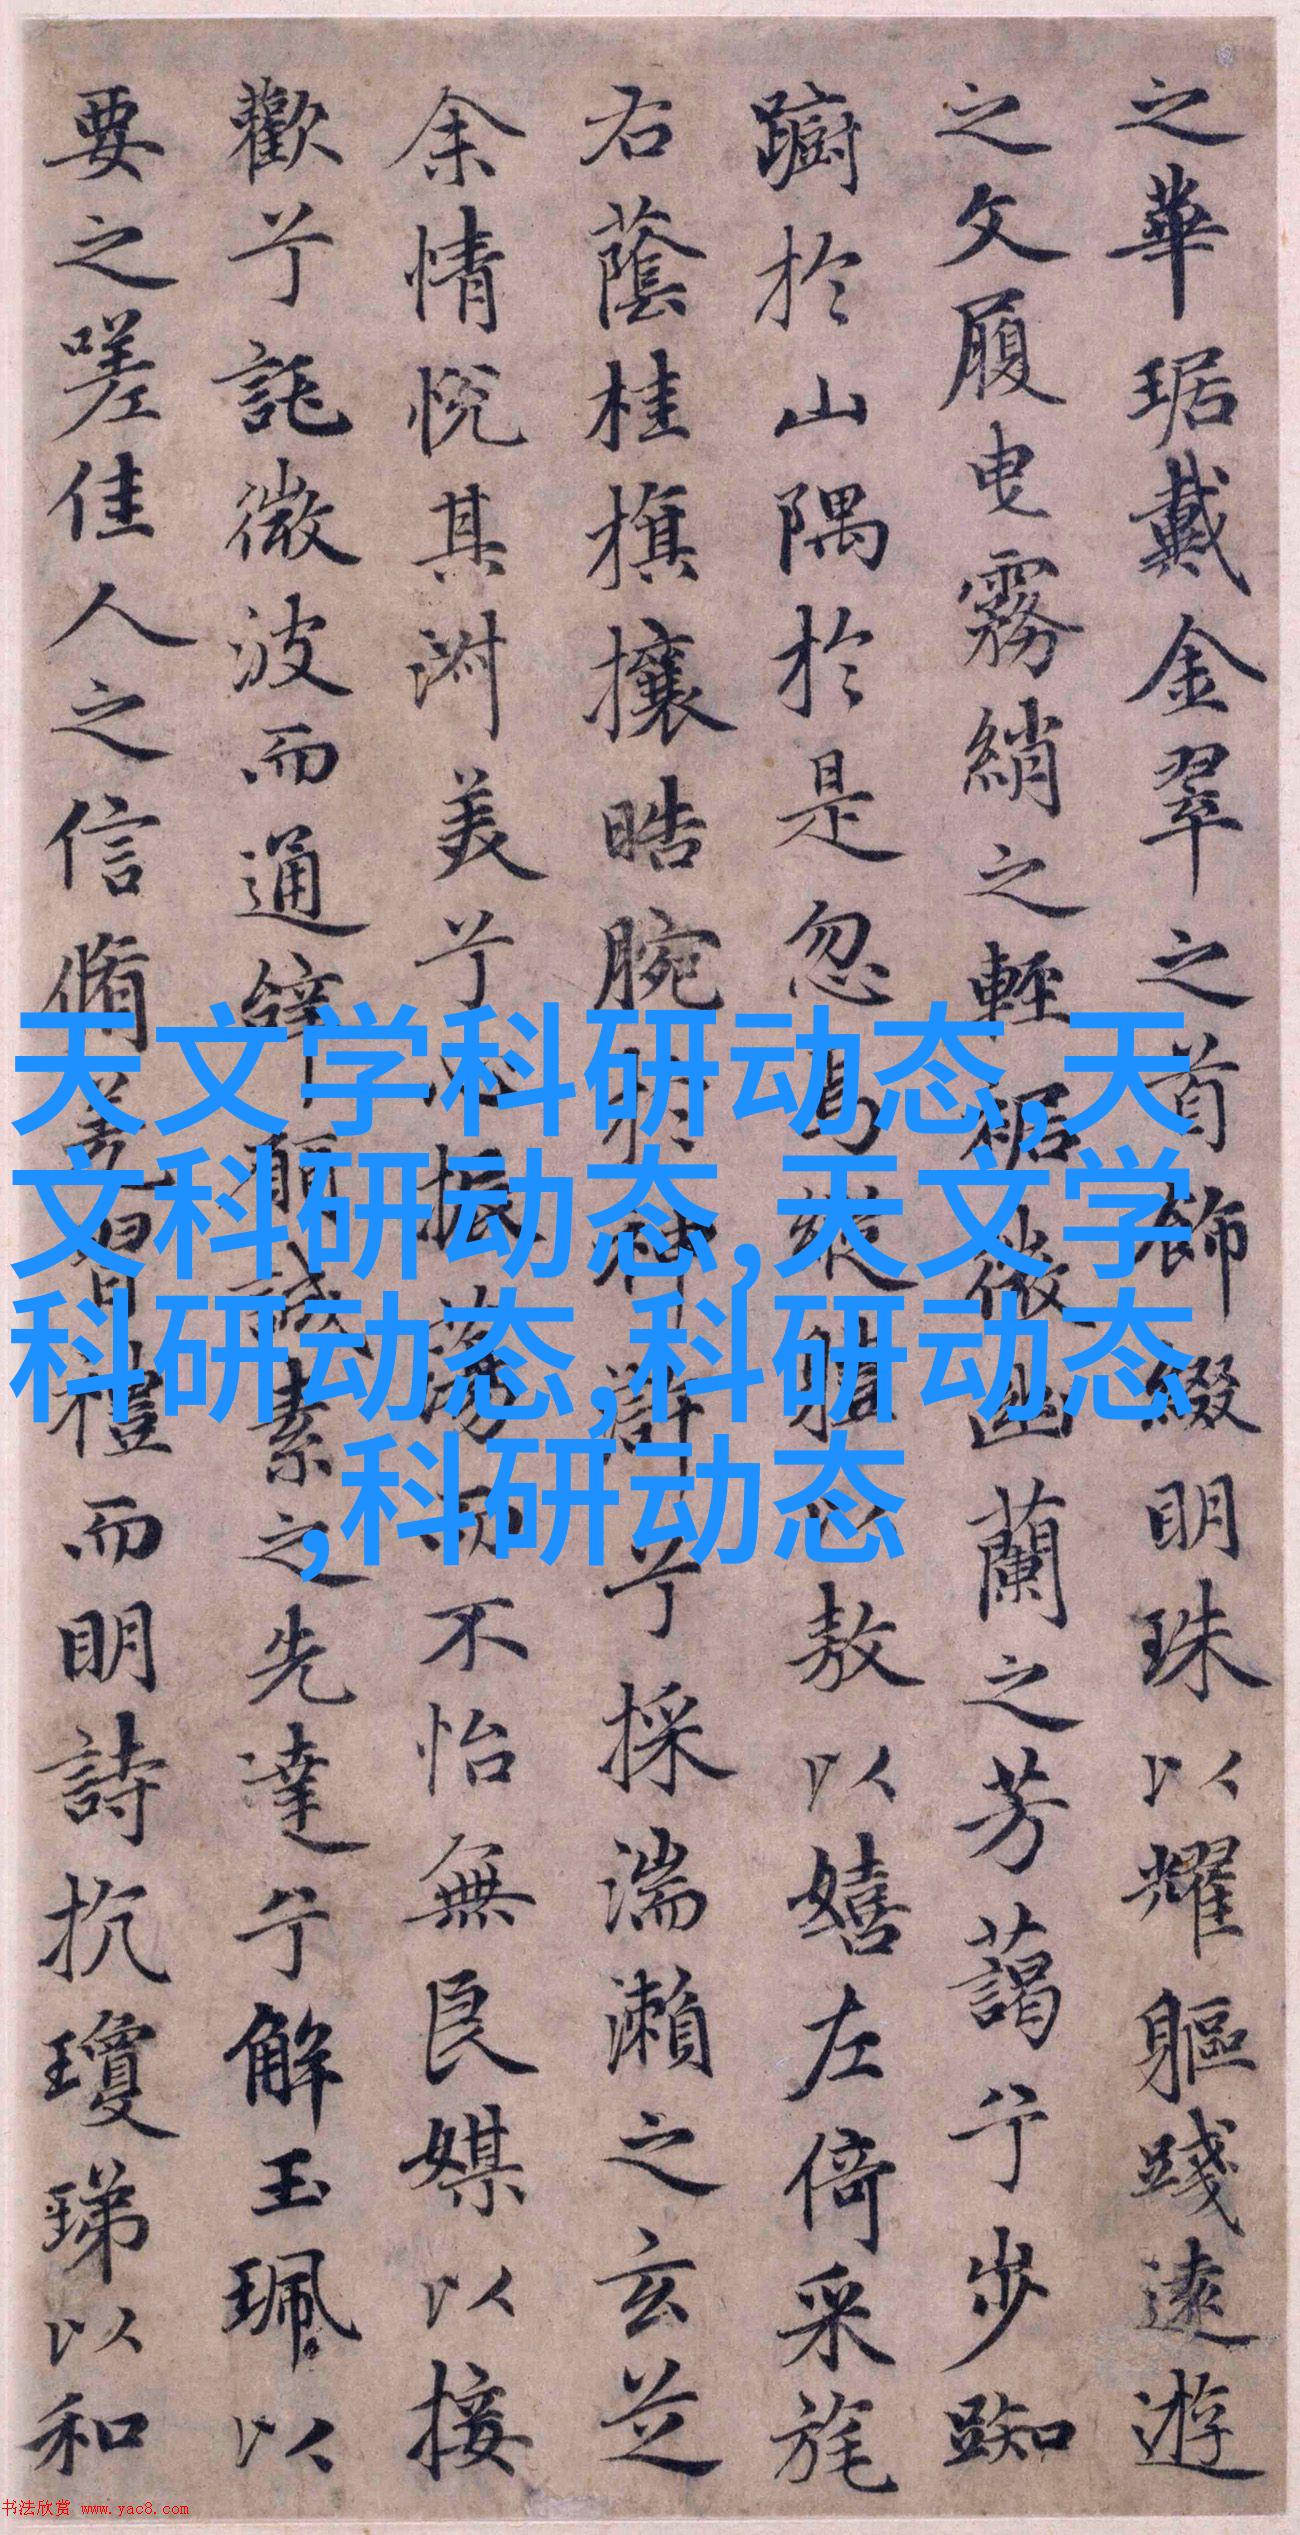 之華琚戴金翠之首飾綴明珠以耀軀踐遠遊
之文履曳霧綃之輕裾微幽蘭之芳藹兮步踟
躕於山隅於是忽焉縱體以敖以嬉左倚采旄
右蔭桂旗攘晧腕於神滸兮採湍瀨之玄芝
余情悅其淑美兮心振蕩而不怡無良媒以接
歡兮託微波而通辭願誠素之先達兮解玉珮以
要之嗟佳人之信脩羌習禮而明詩抗瓊珶以和
天文学科研动态,天
文科研动态,天文学
科研动态,科研动态
,科研动态
书法欣赏 www.yac8.com